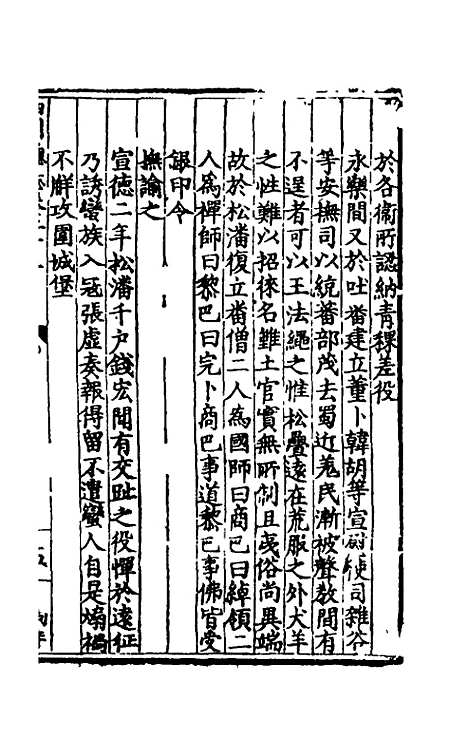 於各衞所認納青稞差役
永樂間又於吐蕃建立董卜韓胡等宣慰使司雜谷
等安撫司以統蕃部茂去蜀近羗民漸被聲教間有
不逞者可以王法繩之惟松疊遠在荒服之外犬羊
之性難以招徠名雖土官實無所制且夷俗尚異端
故於松潘復立畨僧二人為國師曰商巴曰綽領二
人為禪師曰黎巴曰完卜商巴事道黎巴事佛皆受
銀印令
撫諭之
宣德二年松潘千户錢宏聞有交趾之役憚於遠征
乃誘蠻族入冦張虛奏報得留不遣蠻人自是煽禍
不觧攻圍城堡